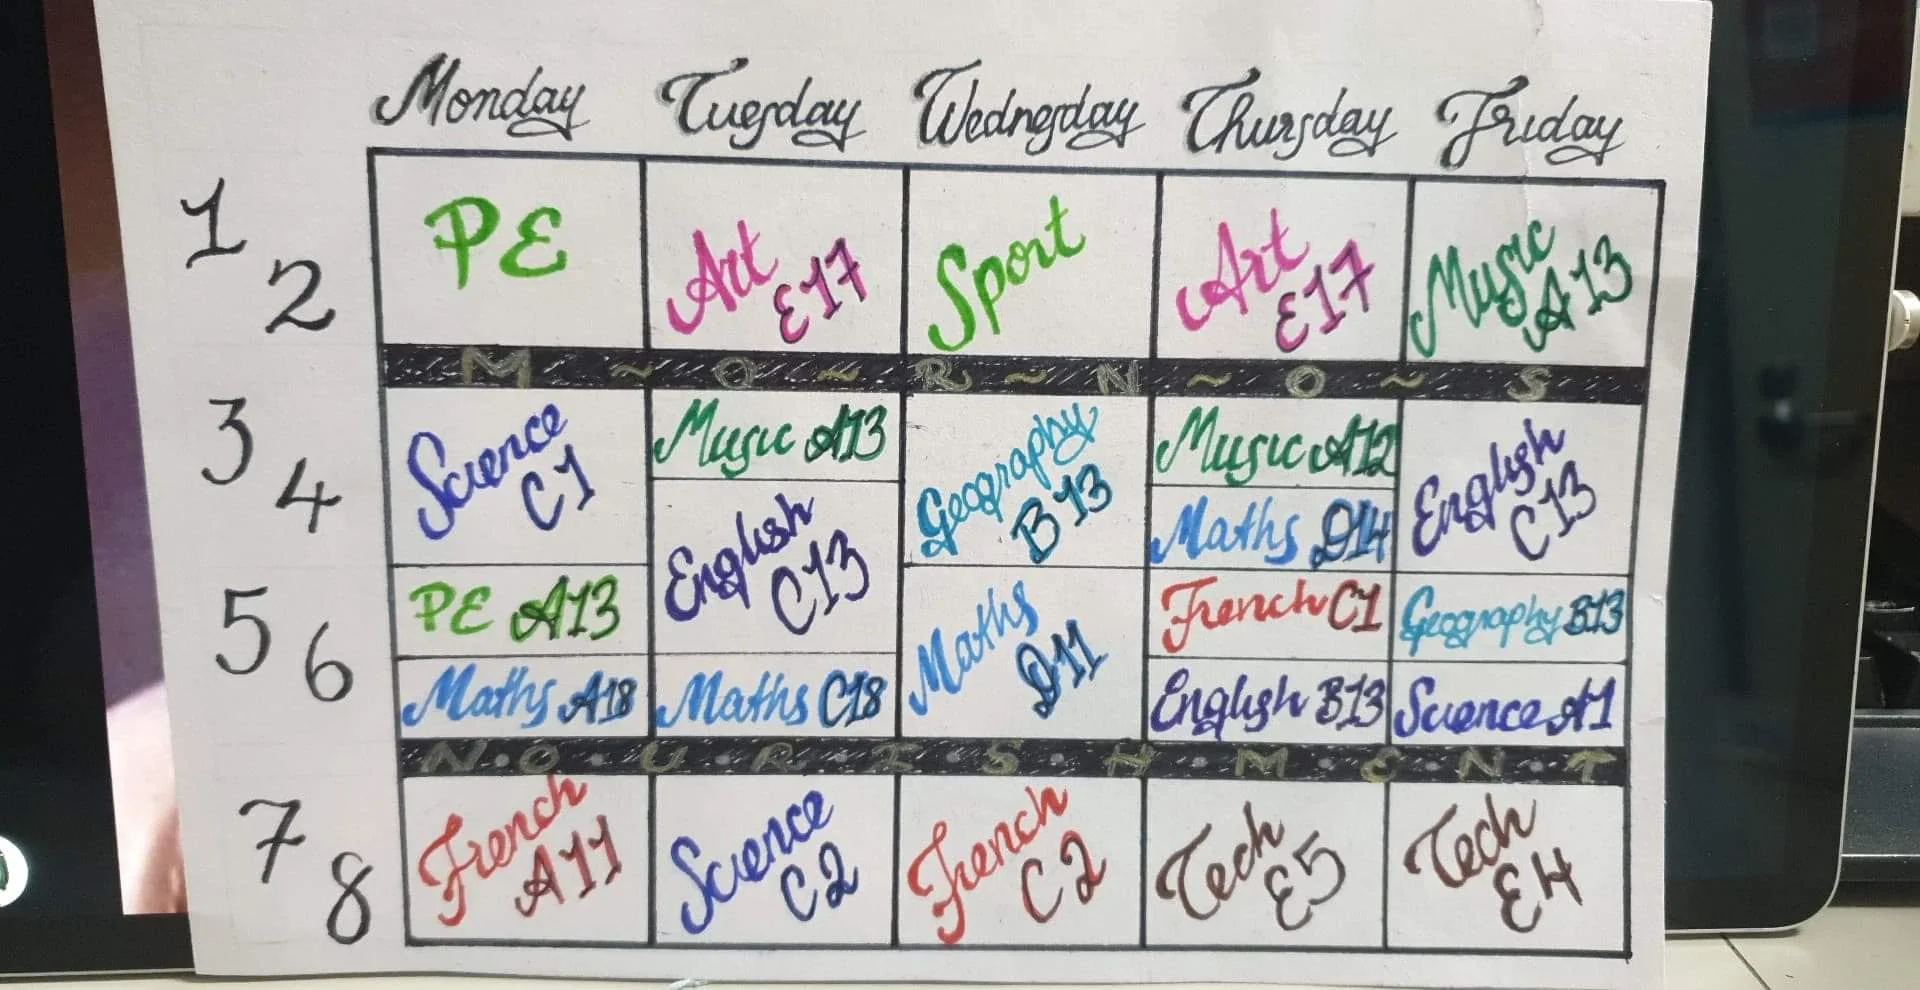 Monday Tuesday Wednesday Thursday Friday
1 2
PE
Art E17
Sport
Art E17
Music A13
M ~ O ~ R ~ N ~ O ~ S
3 4
Science C1
Music A13
Geography B13
Music A12
English C13
English C13
Maths D14
5 6
PE A13
Maths D11
French C1
Geography B13
Maths A18
Maths C18
English B13
Science A1
N·O·U·R·I·S·H·M·E·N·T
7 8
French A11
Science C2
French C2
Tech E5
Tech E4